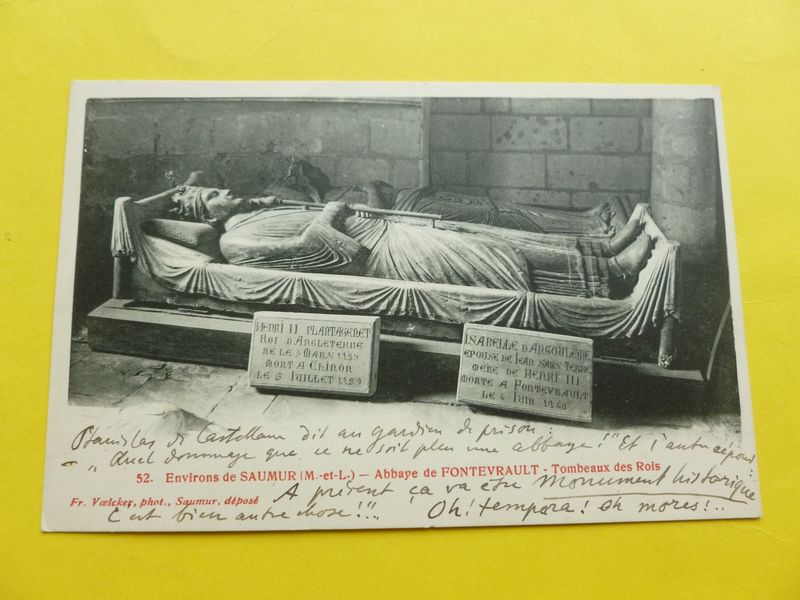 HENRI II PLANTAGENET
ROI D'ANGLETERRE
NE LE 5 MARS 1133
MORT A CHINON
LE 6 JUILLET 1189
ISABELLE D'ANGOULÊME
EPOUSE DE JEAN SANS TERRE
MERE DE HENRI III
MORTE A FONTEVRAULT
LE 4 JUIN 1246
Stanislas de Castellane dit au gardien de prison :
- "Quel dommage que ce ne soit plus une abbaye!" Et l'autre répond :
52. Environs de SAUMUR (M.-et-L.) — Abbaye de FONTEVRAULT - Tombeaux des Rois
A présent ça va être Monument historique
Fr. Vœlcker, phot., Saumur, déposé
C'est bien autre chose!!".. Oh! tempora! oh mores!..